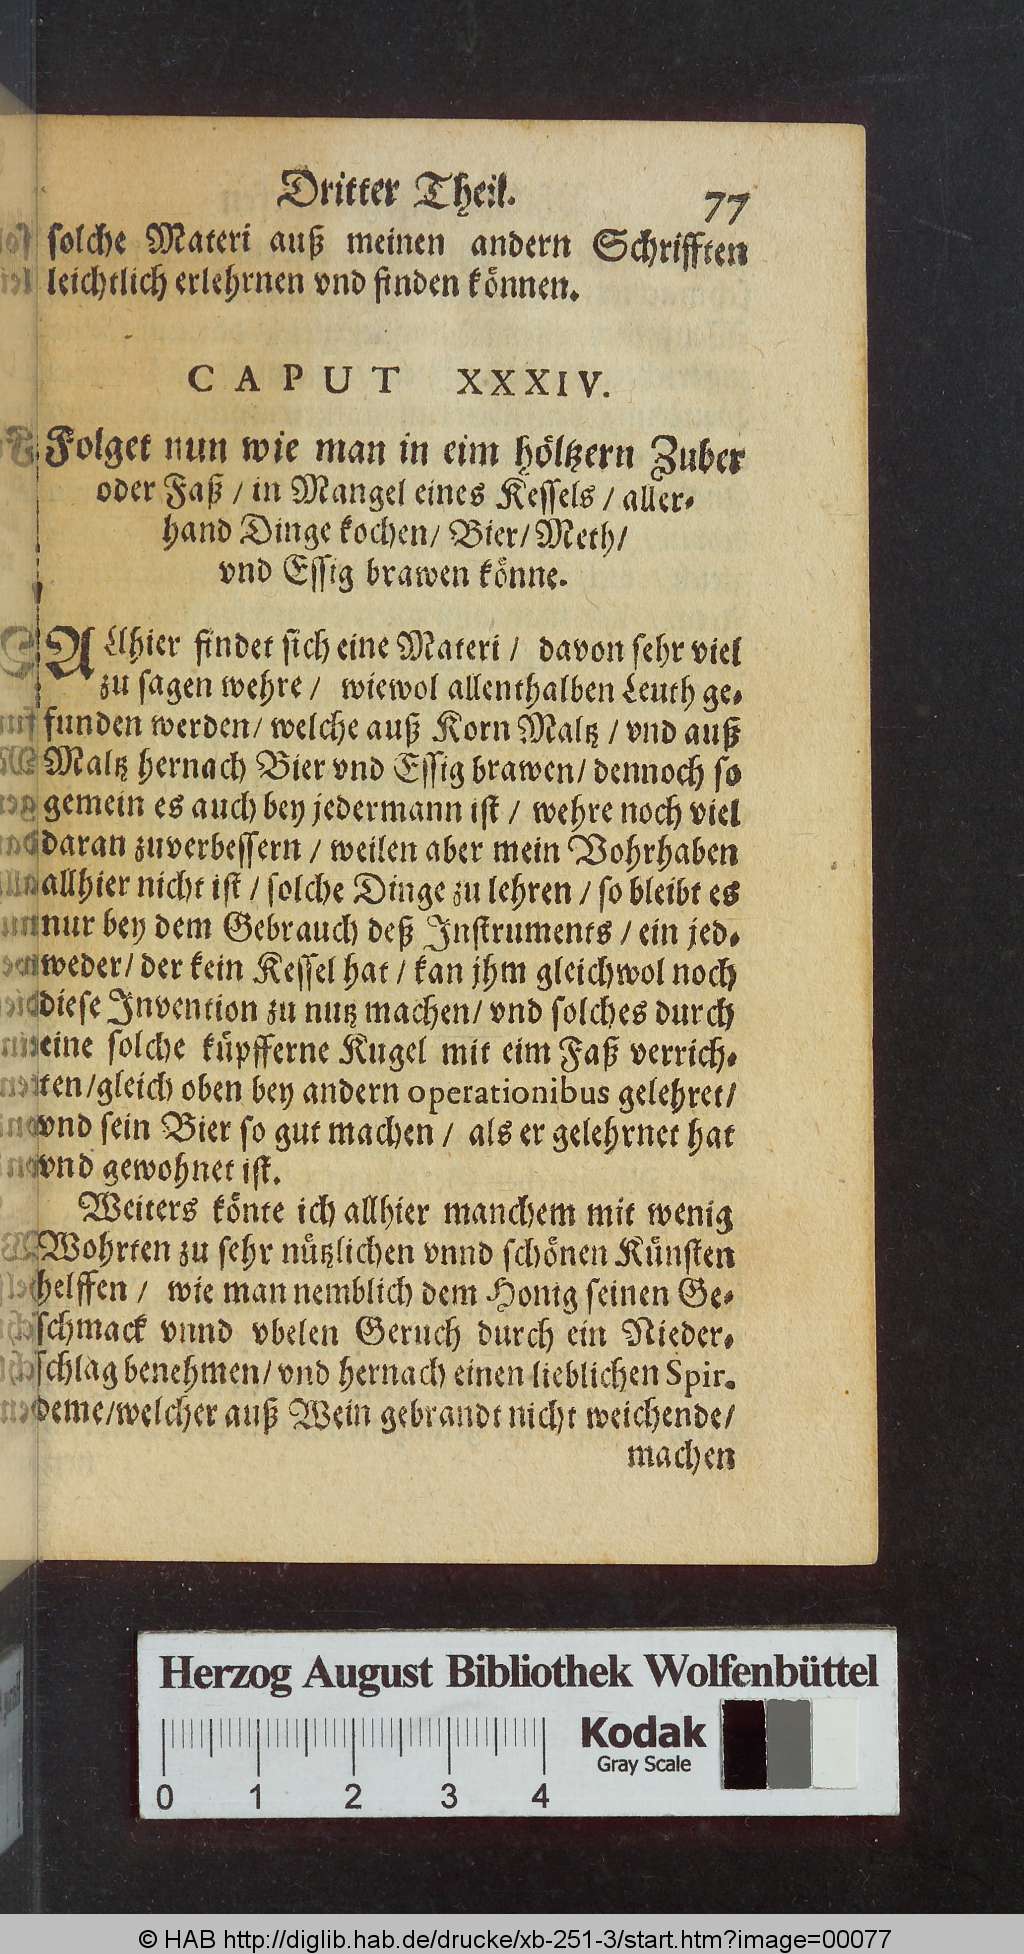 Dritter Theil. 77
solche Materi auß meinen andern Schrifften
leichtlich erlehrnen vnd finden können.
CAPUT XXXIV.
Folget nun wie man in eim höltzern Zuber
oder Faß / in Mangel eines Kessels / aller-
hand Dinge kochen / Bier / Meth /
vnd Essig brawen könne.
ALlhier findet sich eine Materi / davon sehr viel
zu sagen wehre / wiewol allenthalben Leuth ge-
funden werden / welche auß Korn Maltz / vnd auß
Maltz hernach Bier vnd Essig brawen / dennoch so
gemein es auch bey jedermann ist / wehre noch viel
daran zuverbessern / weilen aber mein Vohrhaben
allhier nicht ist / solche Dinge zu lehren / so bleibt es
nur bey dem Gebrauch deß Instruments / ein jed-
weder / der kein Kessel hat / kan jhm gleichwol noch
diese Invention zu nutz machen / vnd solches durch
eine solche küpfferne Kugel mit eim Faß verrich-
ten / gleich oben bey andern operationibus gelehret /
vnd sein Bier so gut machen / als er gelehrnet hat
vnd gewohnet ist.
Weiters könte ich allhier manchem mit wenig
Wohrten zu sehr nützlichen vnnd schönen Künsten
helffen / wie man nemblich dem Honig seinen Ge-
schmack vnnd vbelen Geruch durch ein Nieder-
schlag benehmen / vnd hernach einen lieblichen Spir.
deme / welcher auß Wein gebrandt nicht weichende /
machen
Herzog August Bibliothek Wolfenbüttel
Kodak
Gray Scale
0 1 2 3 4
© HAB http://diglib.hab.de/drucke/xb-251-3/start.htm?image=00077